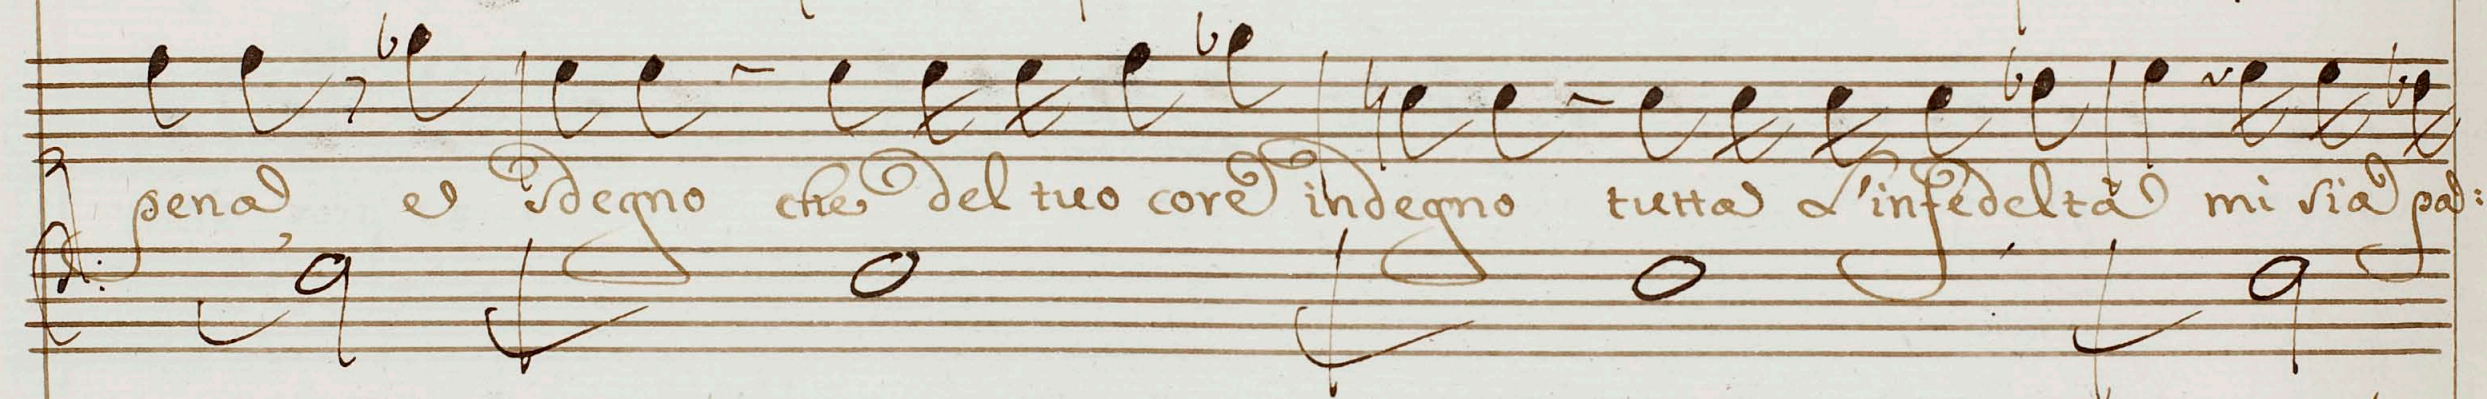 pena e sdegno che del tuo core indegno tutta L'infedeltà mi sia pa: